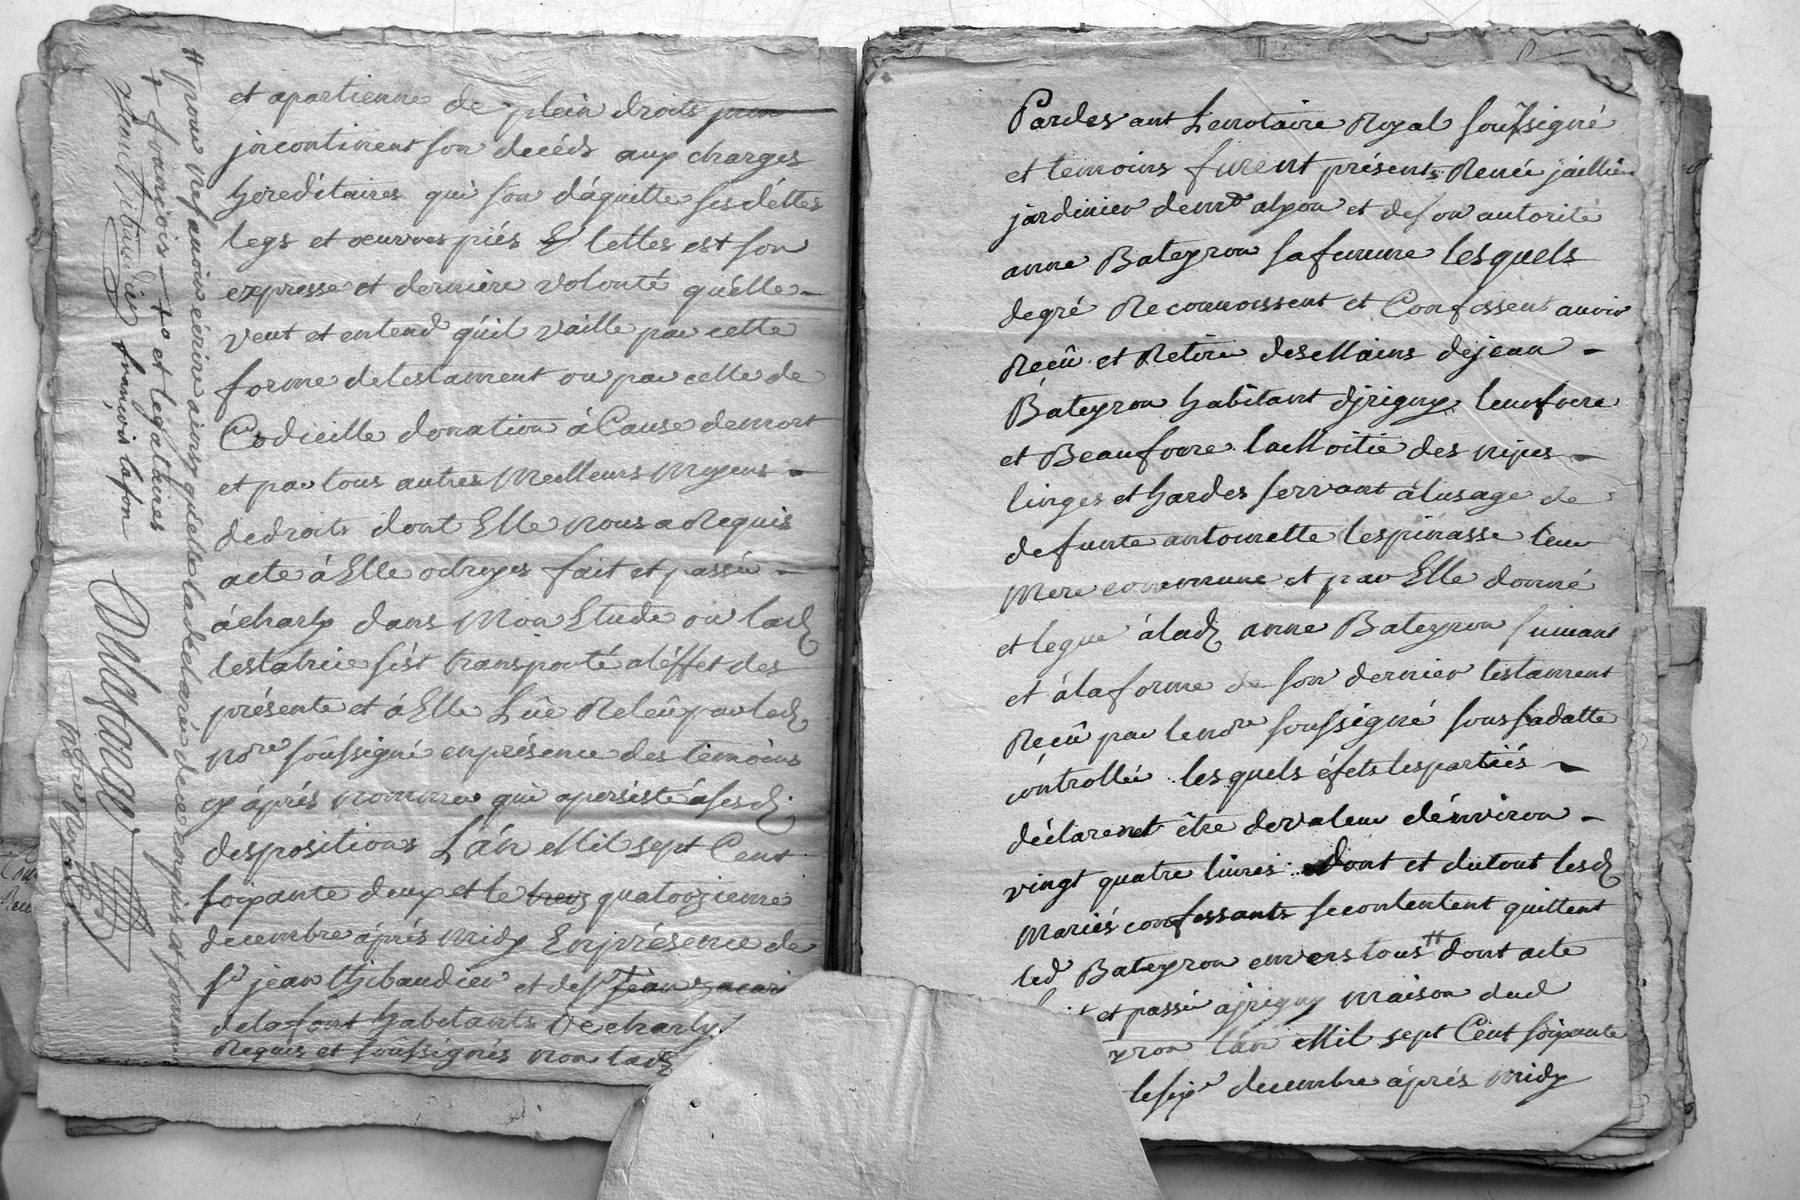 et apartienne de plein droits
jncontinent son decéds aux charges
héréditaires qui son d'áquitte ses déttes
legs et œuvres piés Et lettes est son
expresse et derniere volonté qu'élle
veut et entend qu'il vaille par cette
forme de testament ou par celle de
Codicille donation á Cause de mort
et par tous autres Meilleurs Moyens
de droits dont Elle nous a Requis
acte á Elle octroyes fait et passé
á charly dans Mon Etude ou lad.
testatrice s'ést transporté a l'éffet des
présente et á Elle Lûe Releû par led.
nore soussigné en présence des temoins
cy áprés nommé qui a persisté á sesd.
dispositions L'án Mil sept Cent
soixante deux et le treiz quatorzieme
decembre áprés midy En présence de
sr jean thibaudier et de sr Jean
delafont habitants De charly
Requis et soussignés non lad.
# pour ne savoir écrire ainsy qu'elle la déclaré de ce enquis et sommé
+ francois et légataires
françois lafon
Delafarge
nore Royal
Pardevant Le notaire Royal soussigné
et temoins furent présents Renée jaillie
jardinier de md alpon et de son autorité
anne Bateyron sa femme lesquels
de gré Reconnoissent et Confessent avoir
Reçû et Retiré des Mains de jean
Bateyron habitant d'jrigny leur frere
et Beaufrere la Moitié des nipes
linges et hardes servant á l'usage de
defunte antoinette lespinasse leur
Mere commune et par Elle donné
et legué á lad. anne Bateyron suivant
et á la forme de son dernier testament
Reçû par le nore soussigné sous sa datte
controllée lesquels éfets les partiés
déclarent être de valeur d'énviron
vingt quatre livres dont et du tout lesd.
Mariés confessants se contentent quittent
led. Bateyron envers tous # dont acte
et passé a jrigny maison dud.
yron l'an Mil sept Cent soixante
le six decembre áprés midy